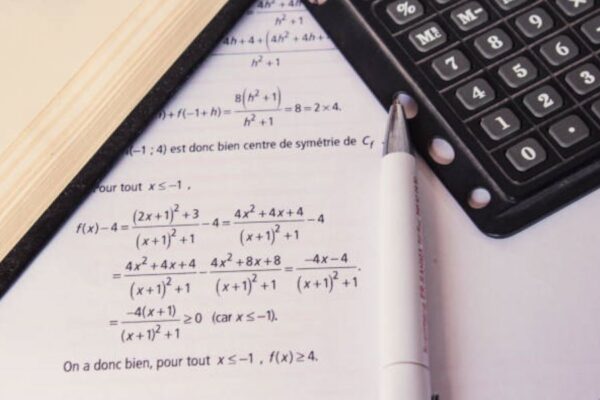 h²+1
4h+4+(4h²+4h+
h²+1
+f(−1+h)= 8(h²+1) / h²+1 =8=2×4.
(−1 ; 4) est donc bien centre de symétrie de C_f
our tout x≤−1 ,
f(x)−4= (2x+1)²+3 / (x+1)²+1 −4= 4x²+4x+4 / (x+1)²+1 −4
= 4x²+4x+4 / (x+1)²+1 − 4x²+8x+8 / (x+1)²+1 = −4x−4 / (x+1)²+1 .
= −4(x+1) / (x+1)²+1 ≥0 (car x≤−1).
On a donc bien, pour tout x≤−1 , f(x)≥4.
% M− ×
9
7 8 6
4 5 3
1 2 •
0